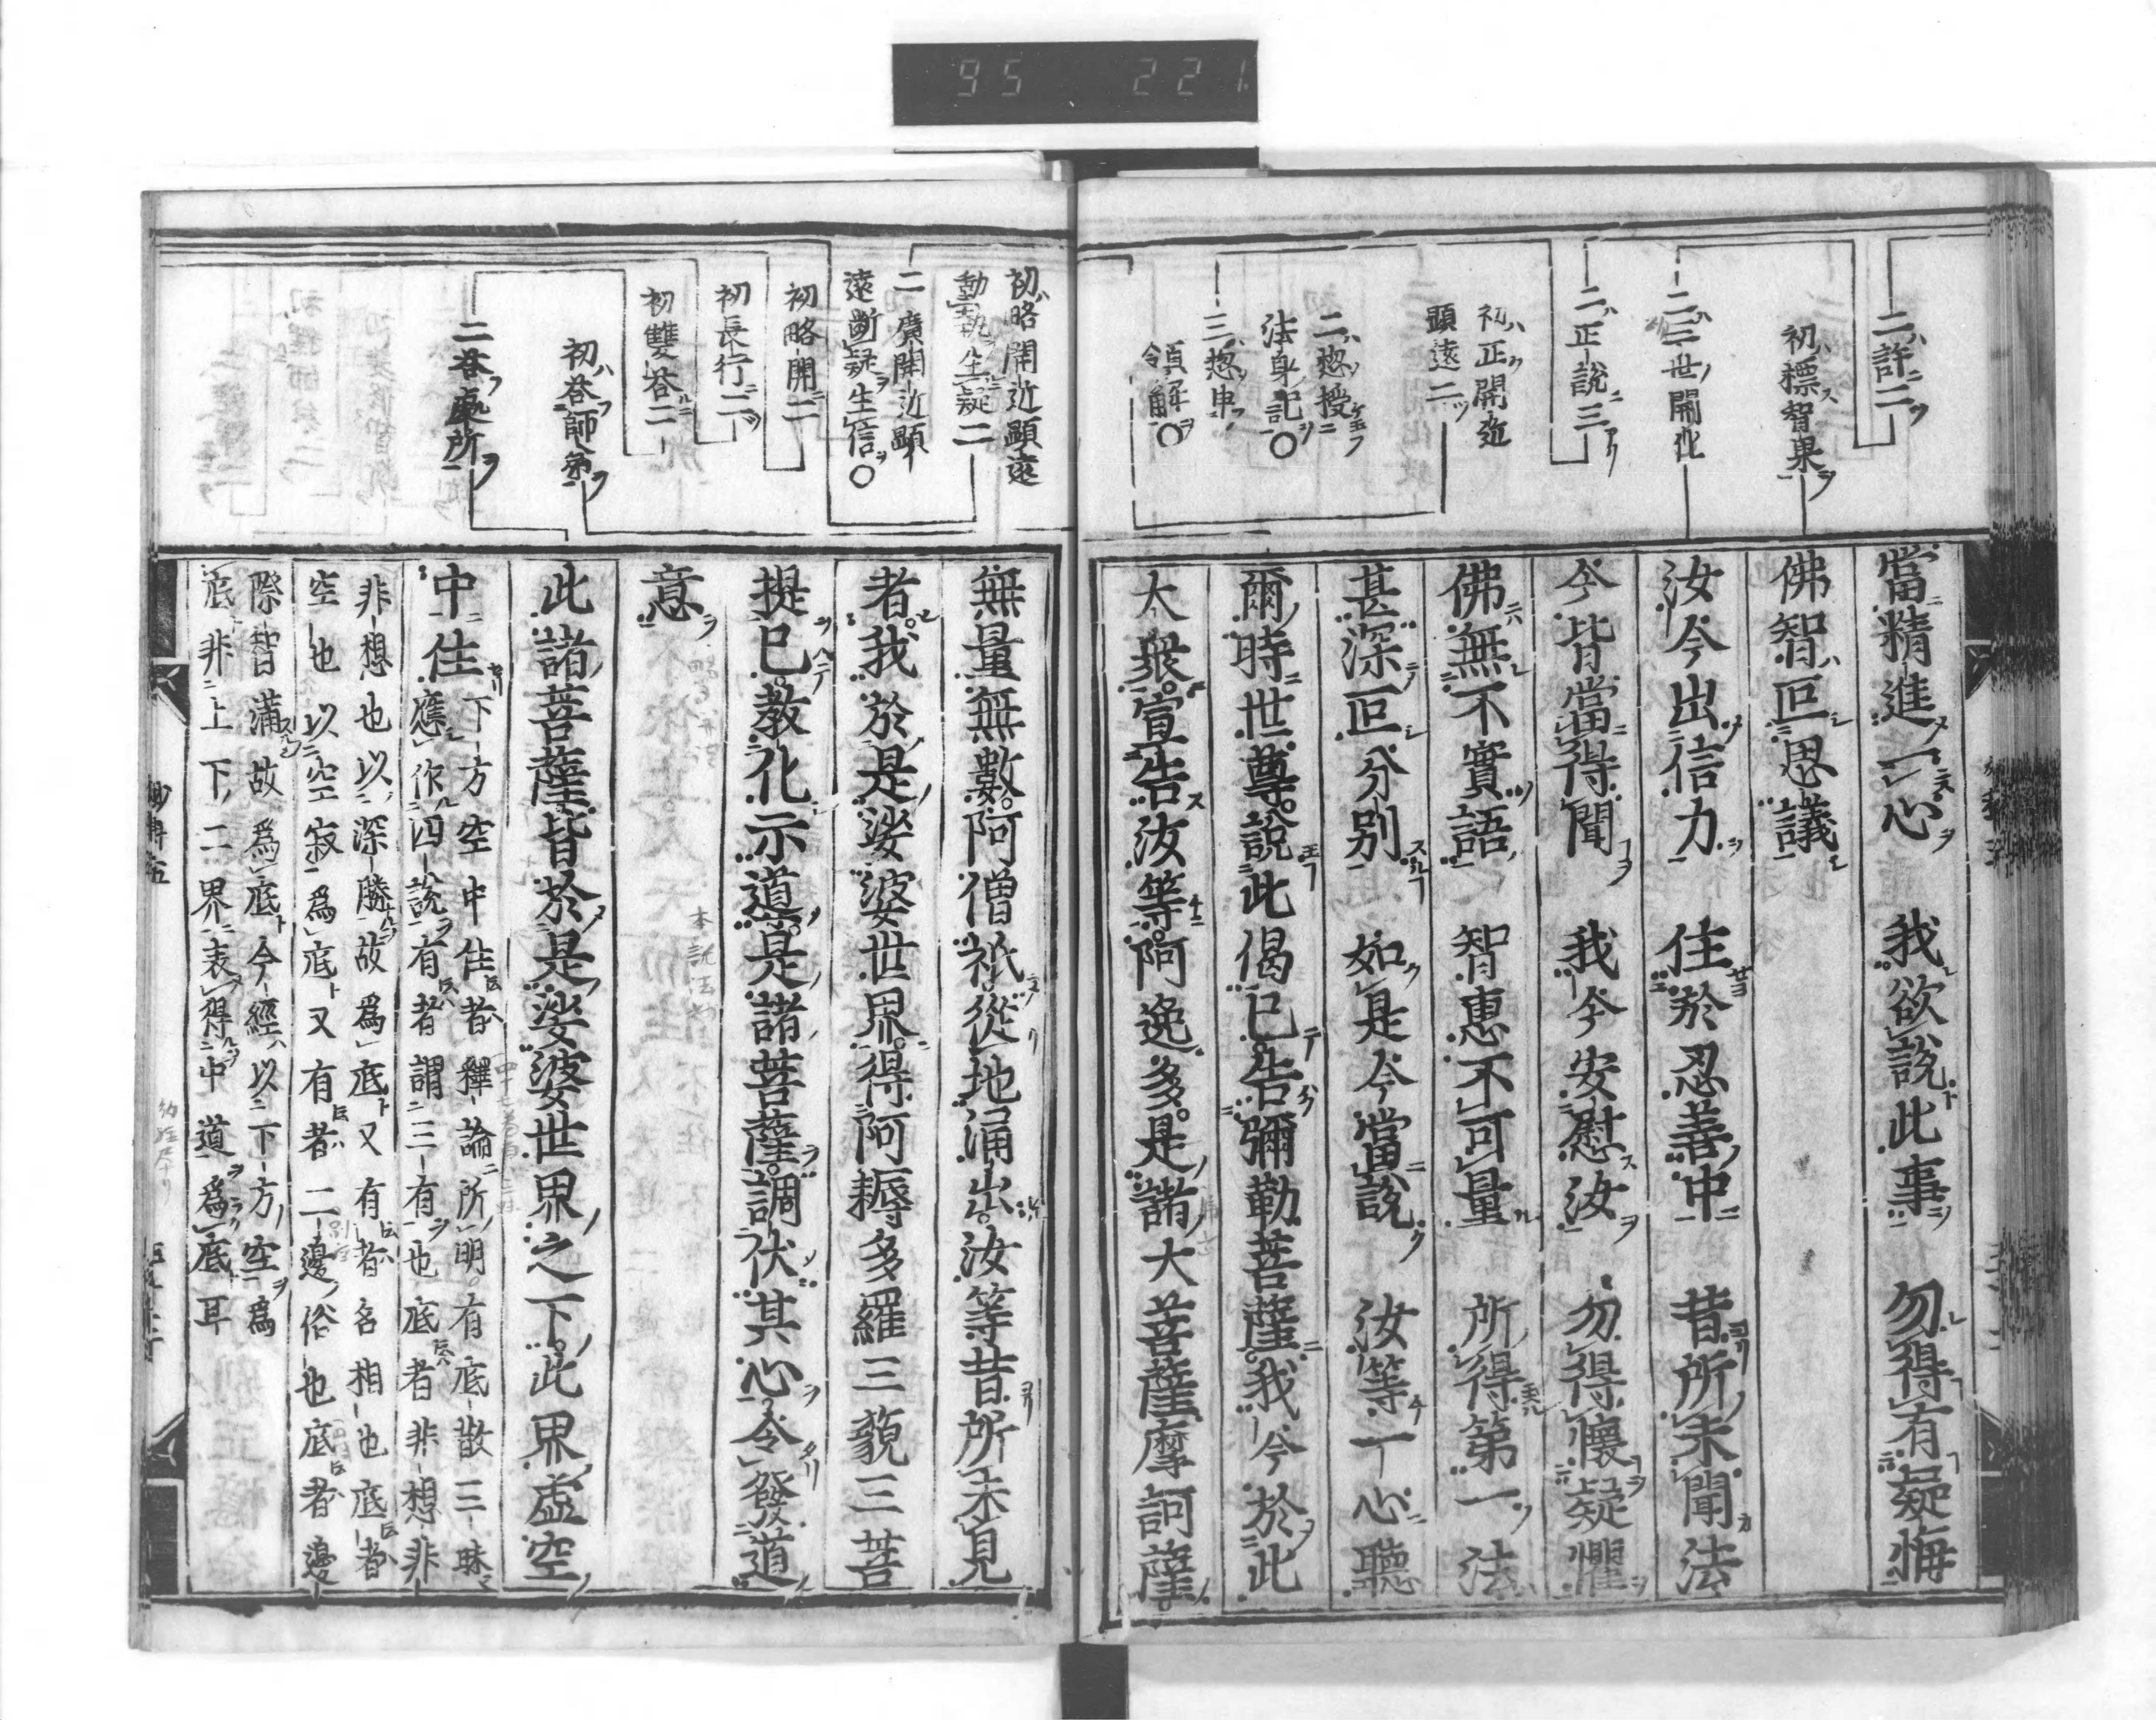 95 221
二許二
初標智果
二三世開化
二正說三
初正開近
顯遠二
二惣授
法身記○
三惣申
領解○
當精進一心 我欲說此事 勿得有疑悔
佛智叵思議
汝今出信力 住於忍善中 昔所未聞法
今皆當得聞 我今安慰汝 勿得懷疑懼
佛無不實語 智惠不可量 所得第一法
甚深叵分別 如是今當說 汝等一心聽
爾時世尊說此偈已告彌勒菩薩我今於此
大衆宣告汝等阿逸多是諸大菩薩摩訶薩
初略開近顯遠
動執生疑二
二廣開近顯
遠斷疑生信○
初略開二
初長行二
初雙答二
初答師弟
二答處所
無量無數阿僧祇從地涌出汝等昔所未見
者我於是娑婆世界得阿耨多羅三藐三菩
提已教化示道是諸菩薩調伏其心令發道
意
此諸菩薩皆於是娑婆世界之下此界虛空
中住
下方空中住者釋論所明有底散三昧
應作四說有者謂三有也底者非想非
非想也以深勝故爲底又有者名相也底者
空也以空寂爲底又有者二邊俗也底者邊
際智滿故爲底今經以下方空爲
底非上下二界表得中道爲底耳